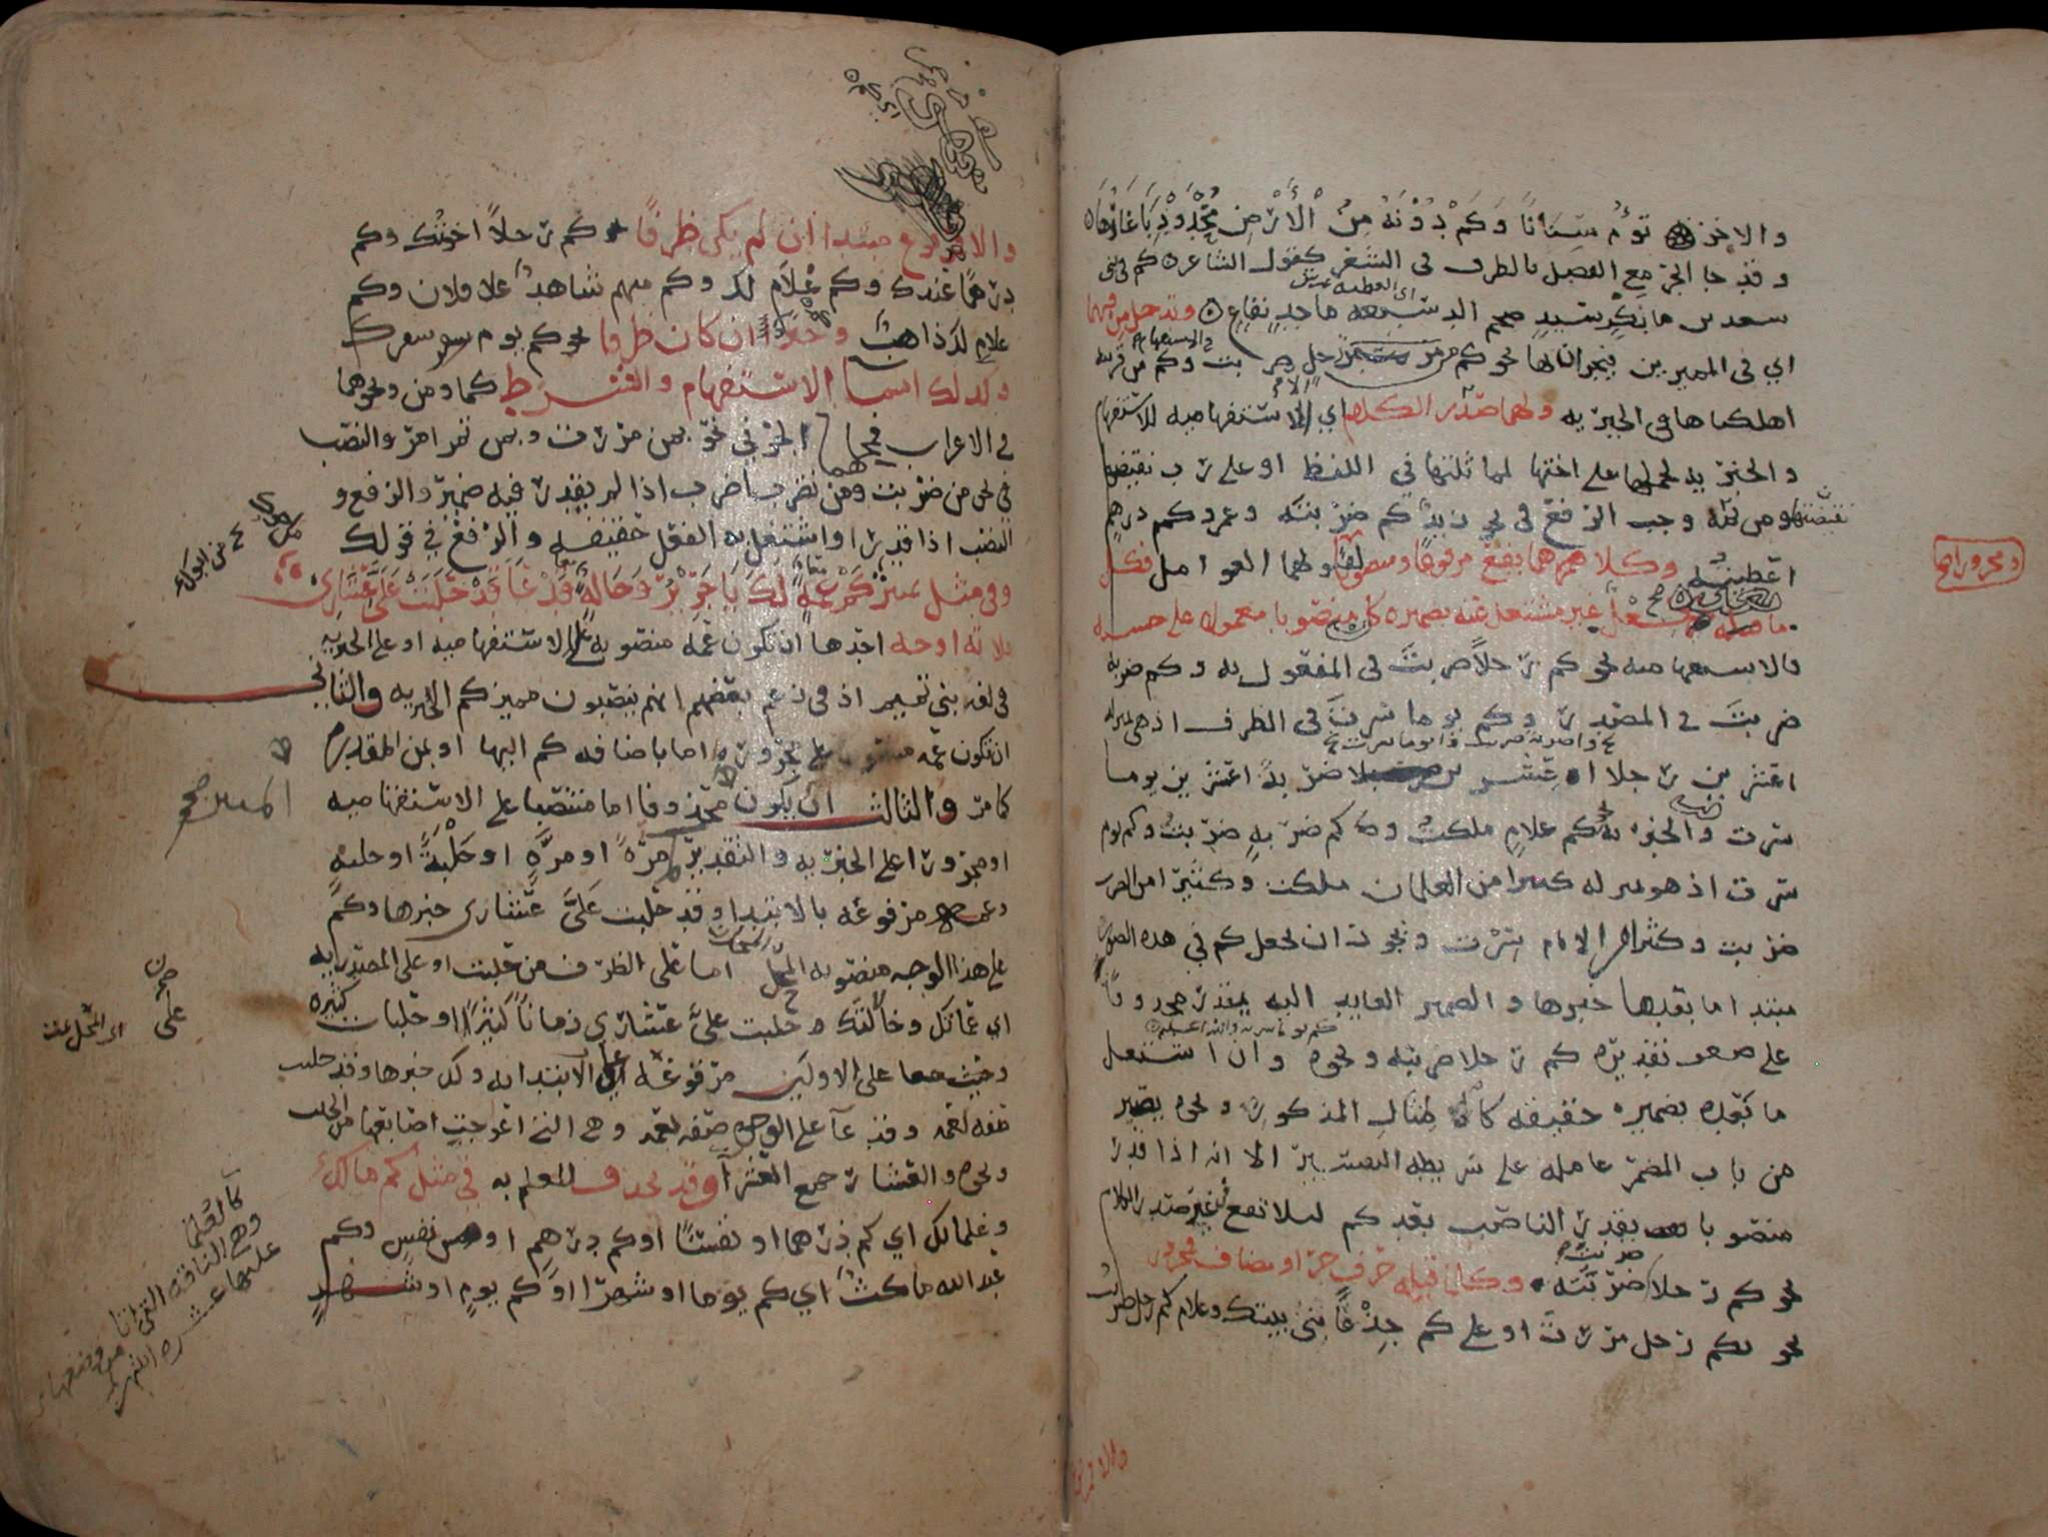 والاخر تؤم سنانا وكم دونه من الأرض محدودبا غارها
وقد جا الجر مع الفصل بالظرف في الشعر كقول الشاعر كم في بني
سعد بن بكر سيد ضخم الدسيعه ماجد نفاع وتدخل من فيهما
اي في المميزين فيجران بها نحو كم من رجل ضربت وكم من قريه
اهلكناها في الخبريه ولهما صدر الكلام اي الاستفهاميه للاستفهام
والخبريه لحملها على اختها لمماثلتها في اللفظ او على رب نقيضتها
ومن ثمه وجب الرفع في نحو زيد كم ضربته وعمرو كم درهم
اعطيته وكلاهما يقع مرفوعا ومنصوبا
ومجرورا
ولهما العوامل فكل
ما بعده فعل غير مشتغل عنه بضميره كان منصوبا معمولا على حسبه
فالاستفهاميه نحو كم رجلا ضربت في المفعول به وكم ضربه
ضربت في المصدر وكم يوما سرت في الظرف اذ هي بمنزله
اعشرين رجلا ضربة اعشرين يوما
سرت والخبريه نحو كم غلام ملكت وكم ضربه ضربت وكم يوم
سرت اذ هو بمنزله كثيرا من الغلمان ملكت وكثيرا من الضرب
ضربت وكثيرا من الايام سرت ويجوز ان تجعل كم في هذه الصور
مبتدا ما بعدها خبرها والضمير العايد اليه يقدر محذوفا
على ضعف تقديره كم رجلا ضربته ونحوه وان اشتغل
ما بعده بضميره حقيقه كالمثال المذكور ونحوه يصير
من باب المضمر عامله على شريطه التفسير الا انه اذا قدر
منصوبا يقدر الناصب بعد كم لئلا تقع في غير صدر الكلام
نحو كم رجلا ضربت ضربته وكل ما قبله حرف جر او مضاف فمجرور
نحو بكم رجل مررت او على كم جذعا بني بيتك وغلام كم رجل ضربت
والا فمرفوع
والا فمرفوع مبتدا ان لم يكن ظرفا نحو كم رجلا اخوتك وكم
درهما عندك وكم غلام لك وكم منهم شاهد على فلان وكم
غلام لك ذاهب وخبرا ان كان ظرفا نحو كم يوم سفرك
وكذلك اسما الاستفهام والشرط كما ومن ونحوهما
في الاعراب فيجيهما الجر في نحو بمن مررت وبمن تمر امر والنصب
في نحو من ضربت ومن تضرب اضرب اذا لم يقدر فيه ضمير والرفع و
النصب اذا قدر او اشتغل به الفعل حقيقه والرفع في قولك
من ابوك
وفي مثل تمييز كم عمة لك يا جرير وخالة فدعاء قد حلبت علي عشاري
ثلاثه اوجه احدها ان تكون عمه منصوبه على الاستفهاميه او على الخبريه
في لغه بني تميم اذ في زعم بعضهم انهم ينصبون مميز كم الخبريه والثاني
ان تكون عمه مجروره اما باضافه كم اليها او بمن المقدره
كما مر والثالث ان يكون محذوفا اما منتصبا على الاستفهاميه
المميز صح
او مجرورا على الخبريه والتقدير كم مرة او مرة او حلبة او حلبة
وعمه مرفوعه بالابتدا وقد حلبت علي عشاري خبرها وكم
على هذا الوجه منصوبه المحل اما على الظرف من حلبت او على المصدريه
اي عماتك وخالاتك حلبت علي عشاري زمانا كثيرا او حلبات كثيره
وحيث على الاولين مرفوعه على الابتدائيه وكم خبرها وقد حلبت
صفه لعمه وفدعا على الوجوه صفه لعمه وهي التي اعوجت اصابعها من الحلب
ونحوه والعشار جمع العشرا وقد تحذف للعلم به في مثل كم مالك
وغلمانك اي كم درهما او نفسا او كم درهم او نفس وكم
عبد الله ماكث اي كم يوما او شهرا او كم يوم او شهر
كالعلما
وهي الناقه التي اتا من وضعها
عليها عشره اشهر